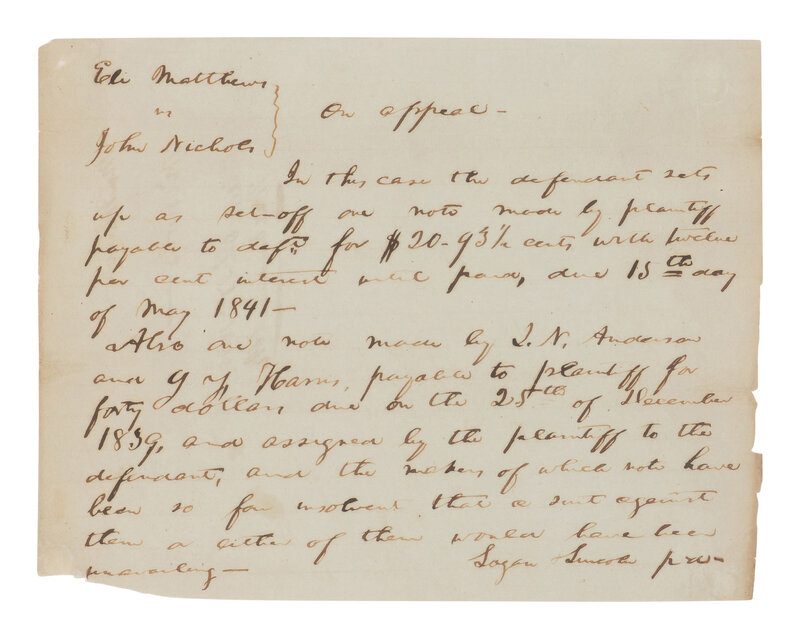 Eli Matthews
vs
John Nichols
On appeal —
In this case the defendant sets
up as set-off one note made by plaintiff
payable to deft for $20-93½ cents with twelve
per cent interest until paid, due 15th day
of May 1841—
Also one note made by I. N. Anderson
and G Y Harris, payable to plaintiff for
forty dollars due on the 25th of December
1839, and assigned by the plaintiff to the
defendant, and the makers of which note have
been so far insolvent that a suit against
them or either of them would have been
unavailing—
Logan & Lincoln p d—